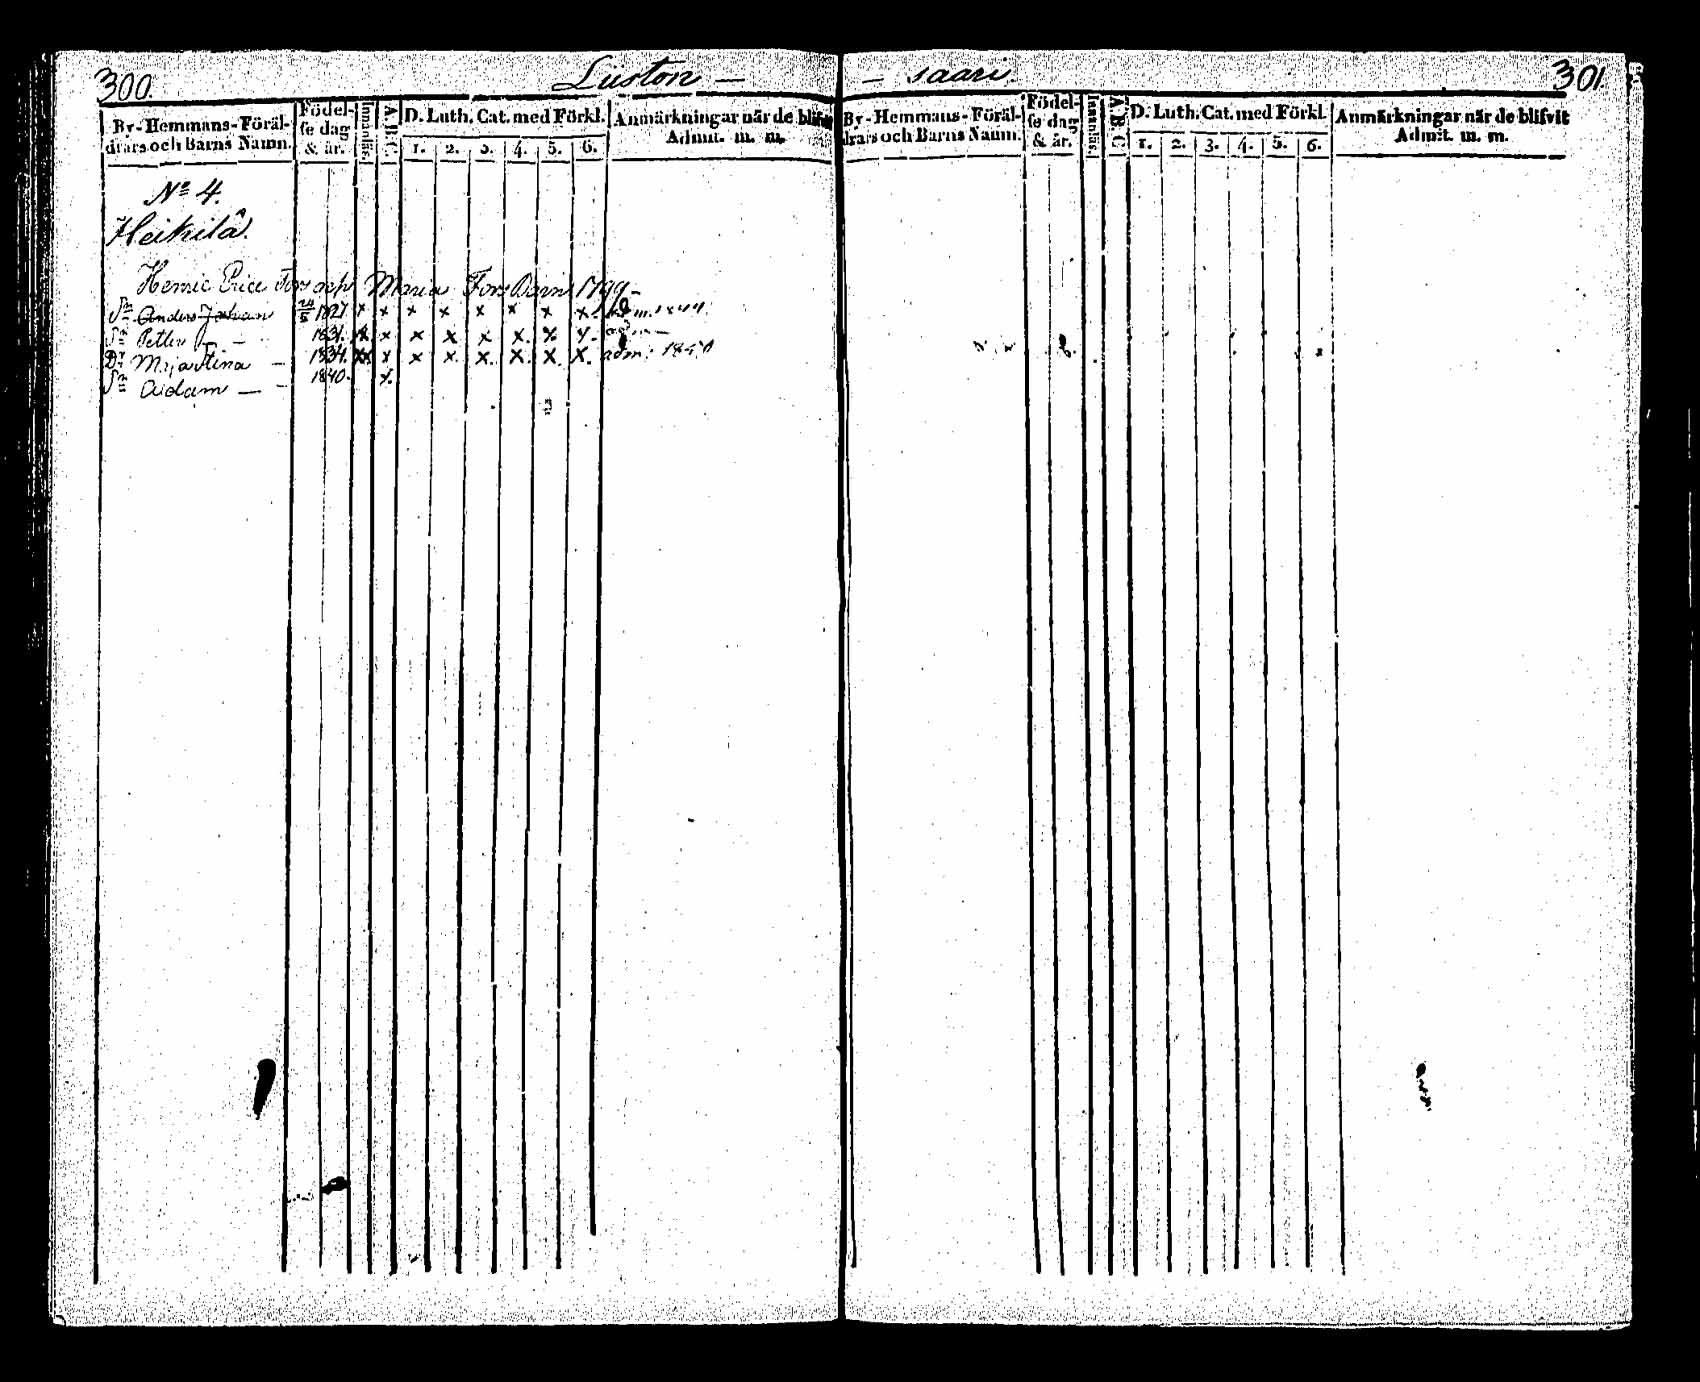 300.
Luston —
By-Hemmans-Föräl-
drars och Barns Namn.
Födel-
se dag
& år.
Innanläs.
A.B.C.
D. Luth. Cat. med Förkl.
1. 2. 3. 4. 5. 6.
Anmärkningar når de blifvit
Admit. m. m.
No 4.
Heikilä.
Henric Erics Fors och Maria Fors Barn 1799 –
Sn Anders Johan 1827 x x x x x x x x adm. 1844.
Sn Petter — 1831. x x x x x x x x. adm —
Dr Maja Stina — 1834. xx x x x. x. x. x. x. adm: 1850
Sn Adam — 1840. x.
— saari.
301.
By-Hemmans-Föräl-
drars och Barns Namn.
Födel-
se dag
& år.
Innanläs.
A.B.C.
D. Luth. Cat. med Förkl.
1. 2. 3. 4. 5. 6.
Anmärkningar når de blifvit
Admit. m. m.